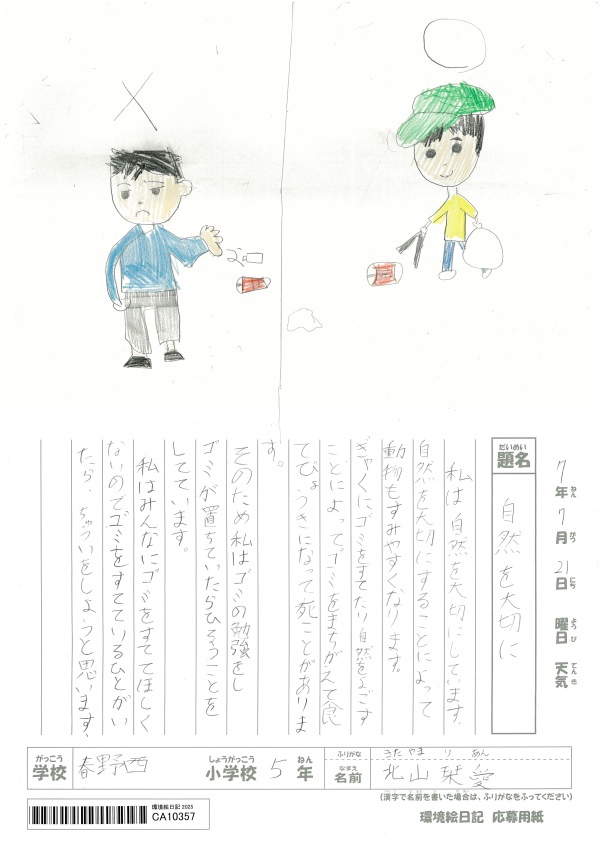 7年7月21日 曜日 天気
ねん がつ にち ようび てんき
だいめい
題名
自然を大切に
私は自然を大切にしています。
自然を大切にすることによって
動物もすみやすくなります。
ぎゃくに、ゴミをすてたり自然をよごす
ことによってゴミをまちがえて食
てびょうきになって死ことがありま
す。
そのため私はゴミの勉強をし
ゴミが置ちていたらひろうことを
してています。
私はみんなにゴミをすててほしく
ないのでゴミをすてているひとがい
たら、ちゅういをしようと思います。
がっこう
学校
春野西
しょうがっこう
小学校
5
ねん
年
ふりがな
きた やま り あん
なまえ
名前
北山 栞愛
(漢字で名前を書いた場合は、ふりがなをふってください)
環境絵日記 2025
CA10357
環境絵日記 応募用紙